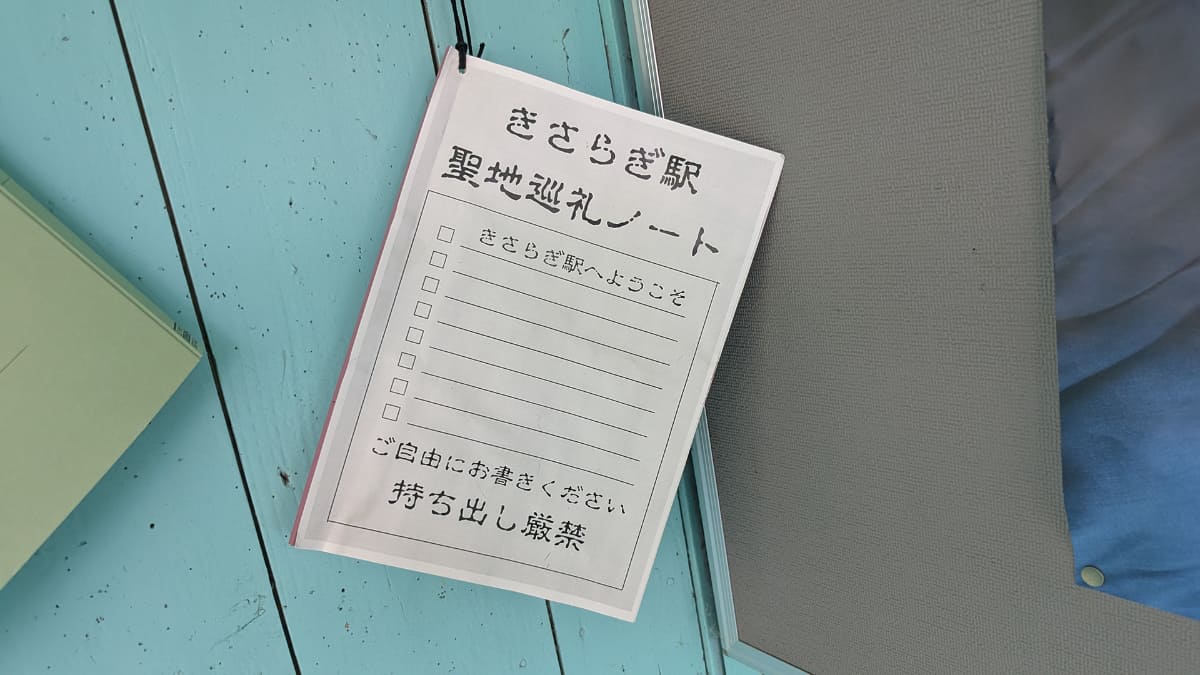 きさらぎ駅
聖地巡礼ノート
きさらぎ駅へようこそ
ご自由にお書きください
持ち出し厳禁